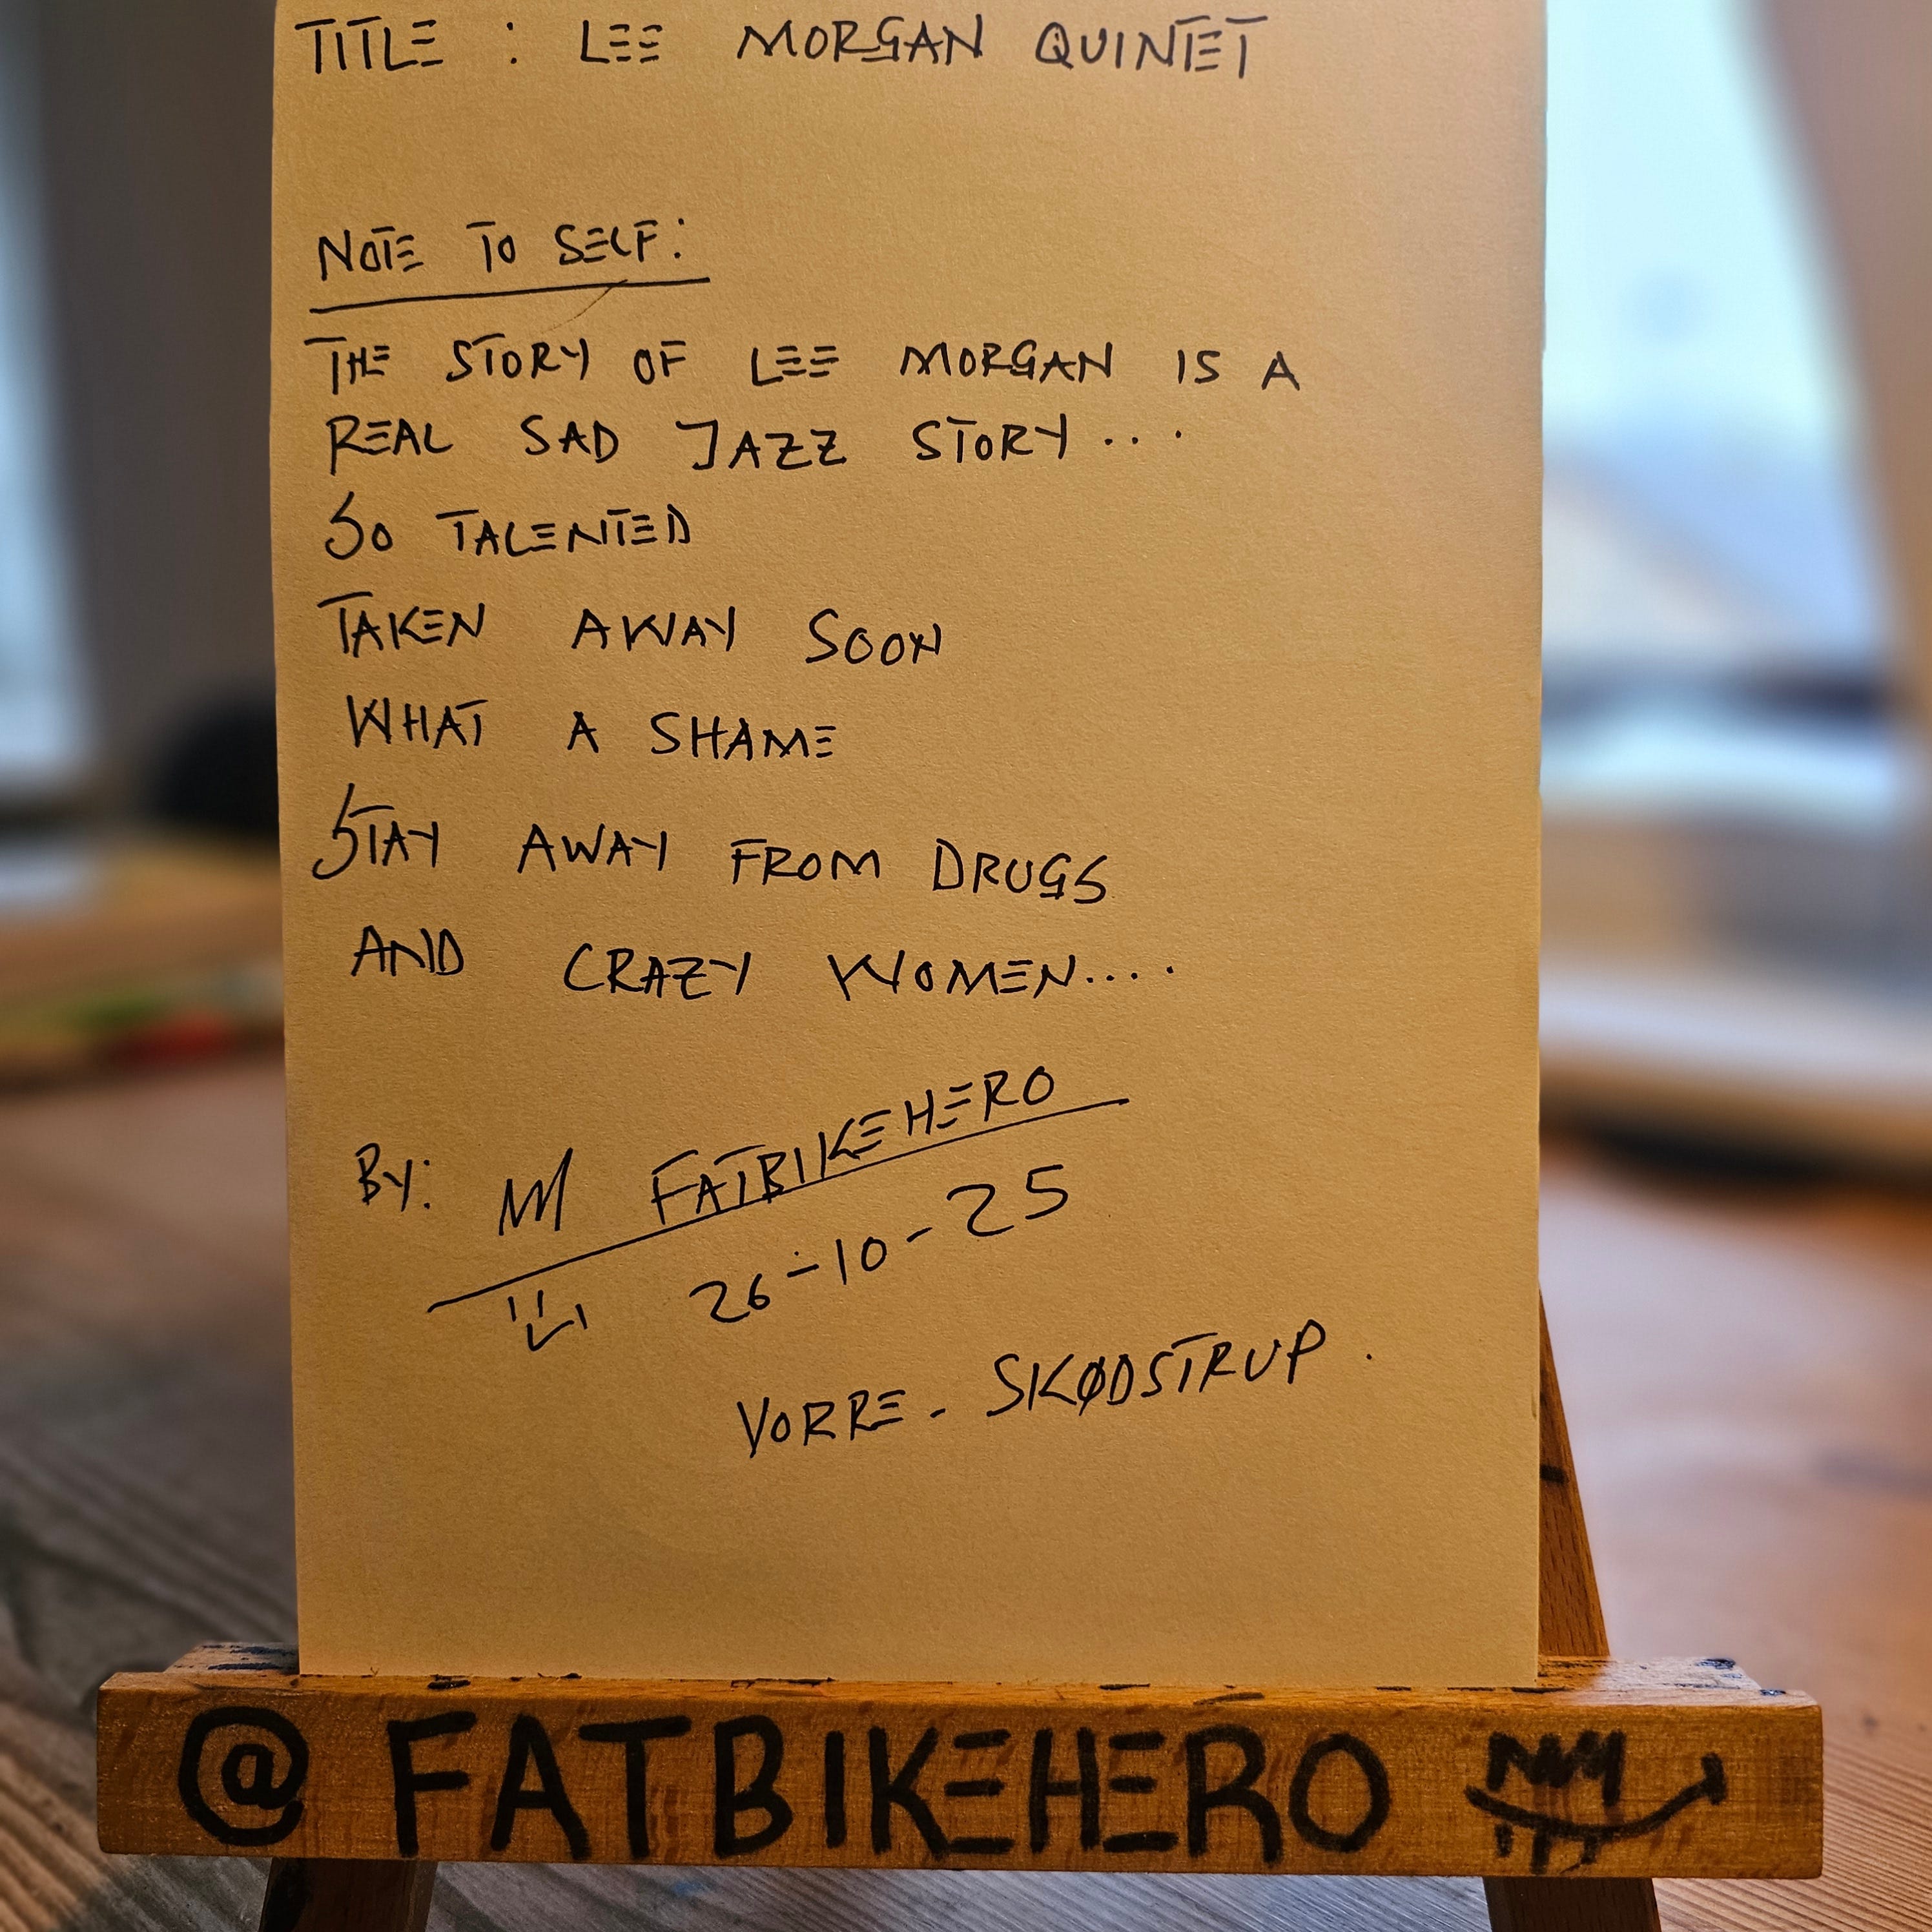 TITLE : LEE MORGAN QUINTET
NOTE TO SELF:
THE STORY OF LEE MORGAN IS A
REAL SAD JAZZ STORY...
SO TALENTED
TAKEN AWAY SOON
WHAT A SHAME
STAY AWAY FROM DRUGS
AND CRAZY WOMEN....
BY: FATBIKEHERO
26-10-25
VORRE - SKØDSTRUP.
@FATBIKEHERO